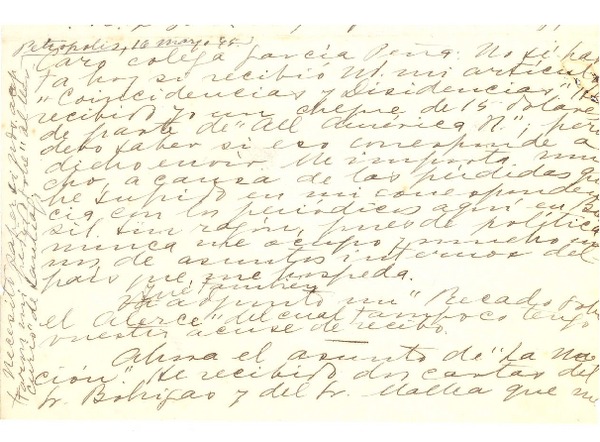 Petrópolis, 16 mayo 45.
Caro colega García Peña: No sé has
ta hoy si recibió Ud. mi artículo
"Coincidencias y Disidencias". He
recibido yo un cheque de 15 dólares
de parte de "All América N."; pero
debo saber si eso corresponde a
dicho envío. Me importa mu
cho, a causa de las pérdidas que
he sufrido en mi corresponden
cia con los periódicos aquí en Bra
sil. Sin razón, pues de política
nunca me ocupo y mucho me
nos de asuntos internos del
país que me hospeda.
Fué también
adjunto un "Recado sobre
el Alerce" del cual tampoco tengo
vuestro acuse de recibo.
Ahora el asunto de "La Na
ción". He recibido dos cartas del
Sr. Bohigas y del Sr. Mallea que me
Necesito saber